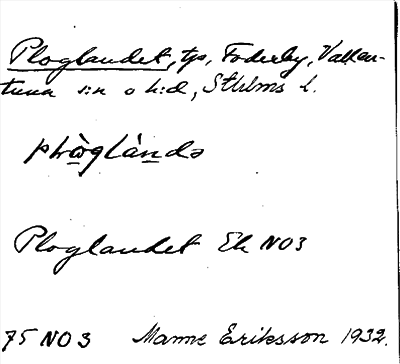 Ploglandet, tp, Foderby, Vallen-
tuna s:n o h:d, Sthlms l.
plὼglànde
Ploglandet Ek NO3
75 NO 3 Manne Eriksson 1932.